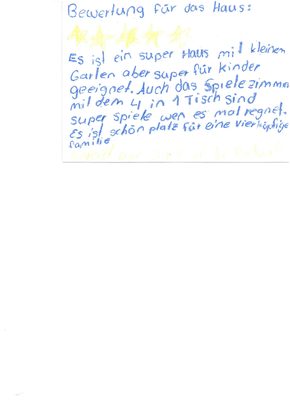 Bewertung für das Haus:
Es ist ein super Haus mit kleinen
Garten aber super für kinder
geeignet. Auch das Spielezimme
mit dem 4 in 1 Tisch sind
super spiele wen es mal regnet.
Es ist schön platz für eine vierköpfige
familie